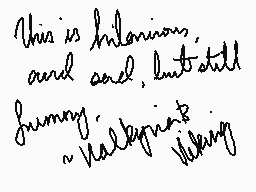 This is hilarious,
and sad, but still
funny.
~ Valkyrie &
Viking